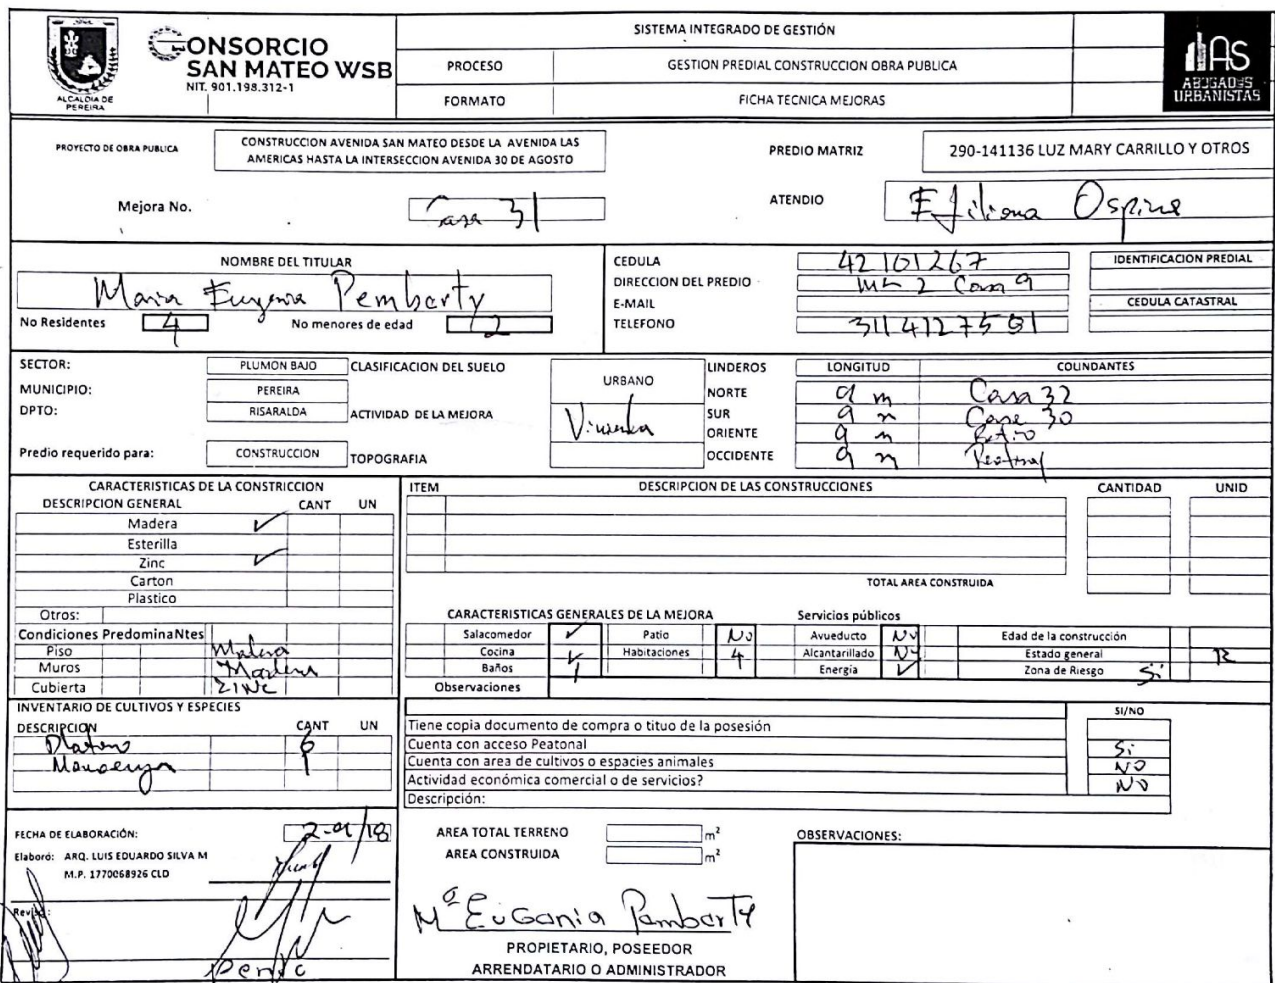 ALCALDIA DE
PEREIRA
CONSORCIO
SAN MATEO WSB
NIT. 901.198.312-1
SISTEMA INTEGRADO DE GESTIÓN
PROCESO GESTION PREDIAL CONSTRUCCION OBRA PUBLICA
FORMATO FICHA TECNICA MEJORAS
AS
ABOGADOS
URBANISTAS
PROYECTO DE OBRA PUBLICA
CONSTRUCCION AVENIDA SAN MATEO DESDE LA AVENIDA LAS
AMERICAS HASTA LA INTERSECCION AVENIDA 30 DE AGOSTO
PREDIO MATRIZ 290-141136 LUZ MARY CARRILLO Y OTROS
Mejora No. Casa 31
ATENDIO Ospina
NOMBRE DEL TITULAR
Maria Eugenia Pemberty
No Residentes 4 No menores de edad 2
CEDULA 42101267
DIRECCION DEL PREDIO Mz 2 Casa 9
E-MAIL
TELEFONO 3114127501
IDENTIFICACION PREDIAL
CEDULA CATASTRAL
SECTOR: PLUMON BAJO
MUNICIPIO: PEREIRA
DPTO: RISARALDA
Predio requerido para: CONSTRUCCION
CLASIFICACION DEL SUELO URBANO
ACTIVIDAD DE LA MEJORA Vivienda
TOPOGRAFIA
LINDEROS LONGITUD COLINDANTES
NORTE 9 m Casa 32
SUR 9 m Casa 30
ORIENTE 9 m
OCCIDENTE 9 m Peatonal
CARACTERISTICAS DE LA CONSTRICCION
DESCRIPCION GENERAL CANT UN
Madera ✓
Esterilla
Zinc ✓
Carton
Plastico
Otros:
Condiciones PredominaNtes
Piso Madera
Muros Madera
Cubierta ZINC
ITEM DESCRIPCION DE LAS CONSTRUCCIONES CANTIDAD UNID
TOTAL AREA CONSTRUIDA
CARACTERISTICAS GENERALES DE LA MEJORA Servicios públicos
Salacomedor ✓ Patio No Avueducto No Edad de la construcción
Cocina ✓ Habitaciones 4 Alcantarillado No Estado general R
Baños 1 Energía ✓ Zona de Riesgo Si
Observaciones
INVENTARIO DE CULTIVOS Y ESPECIES
DESCRIPCION CANT UN
Platano 6
1
SI/NO
Tiene copia documento de compra o tituo de la posesión
Cuenta con acceso Peatonal Si
Cuenta con area de cultivos o espacies animales NO
Actividad económica comercial o de servicios? NO
Descripción:
FECHA DE ELABORACIÓN:
Elaboró: ARQ. LUIS EDUARDO SILVA M
M.P. 1770068926 CLD
Reviso:
AREA TOTAL TERRENO m²
AREA CONSTRUIDA m²
Mª EuGania PambarTy
PROPIETARIO, POSEEDOR
ARRENDATARIO O ADMINISTRADOR
OBSERVACIONES: